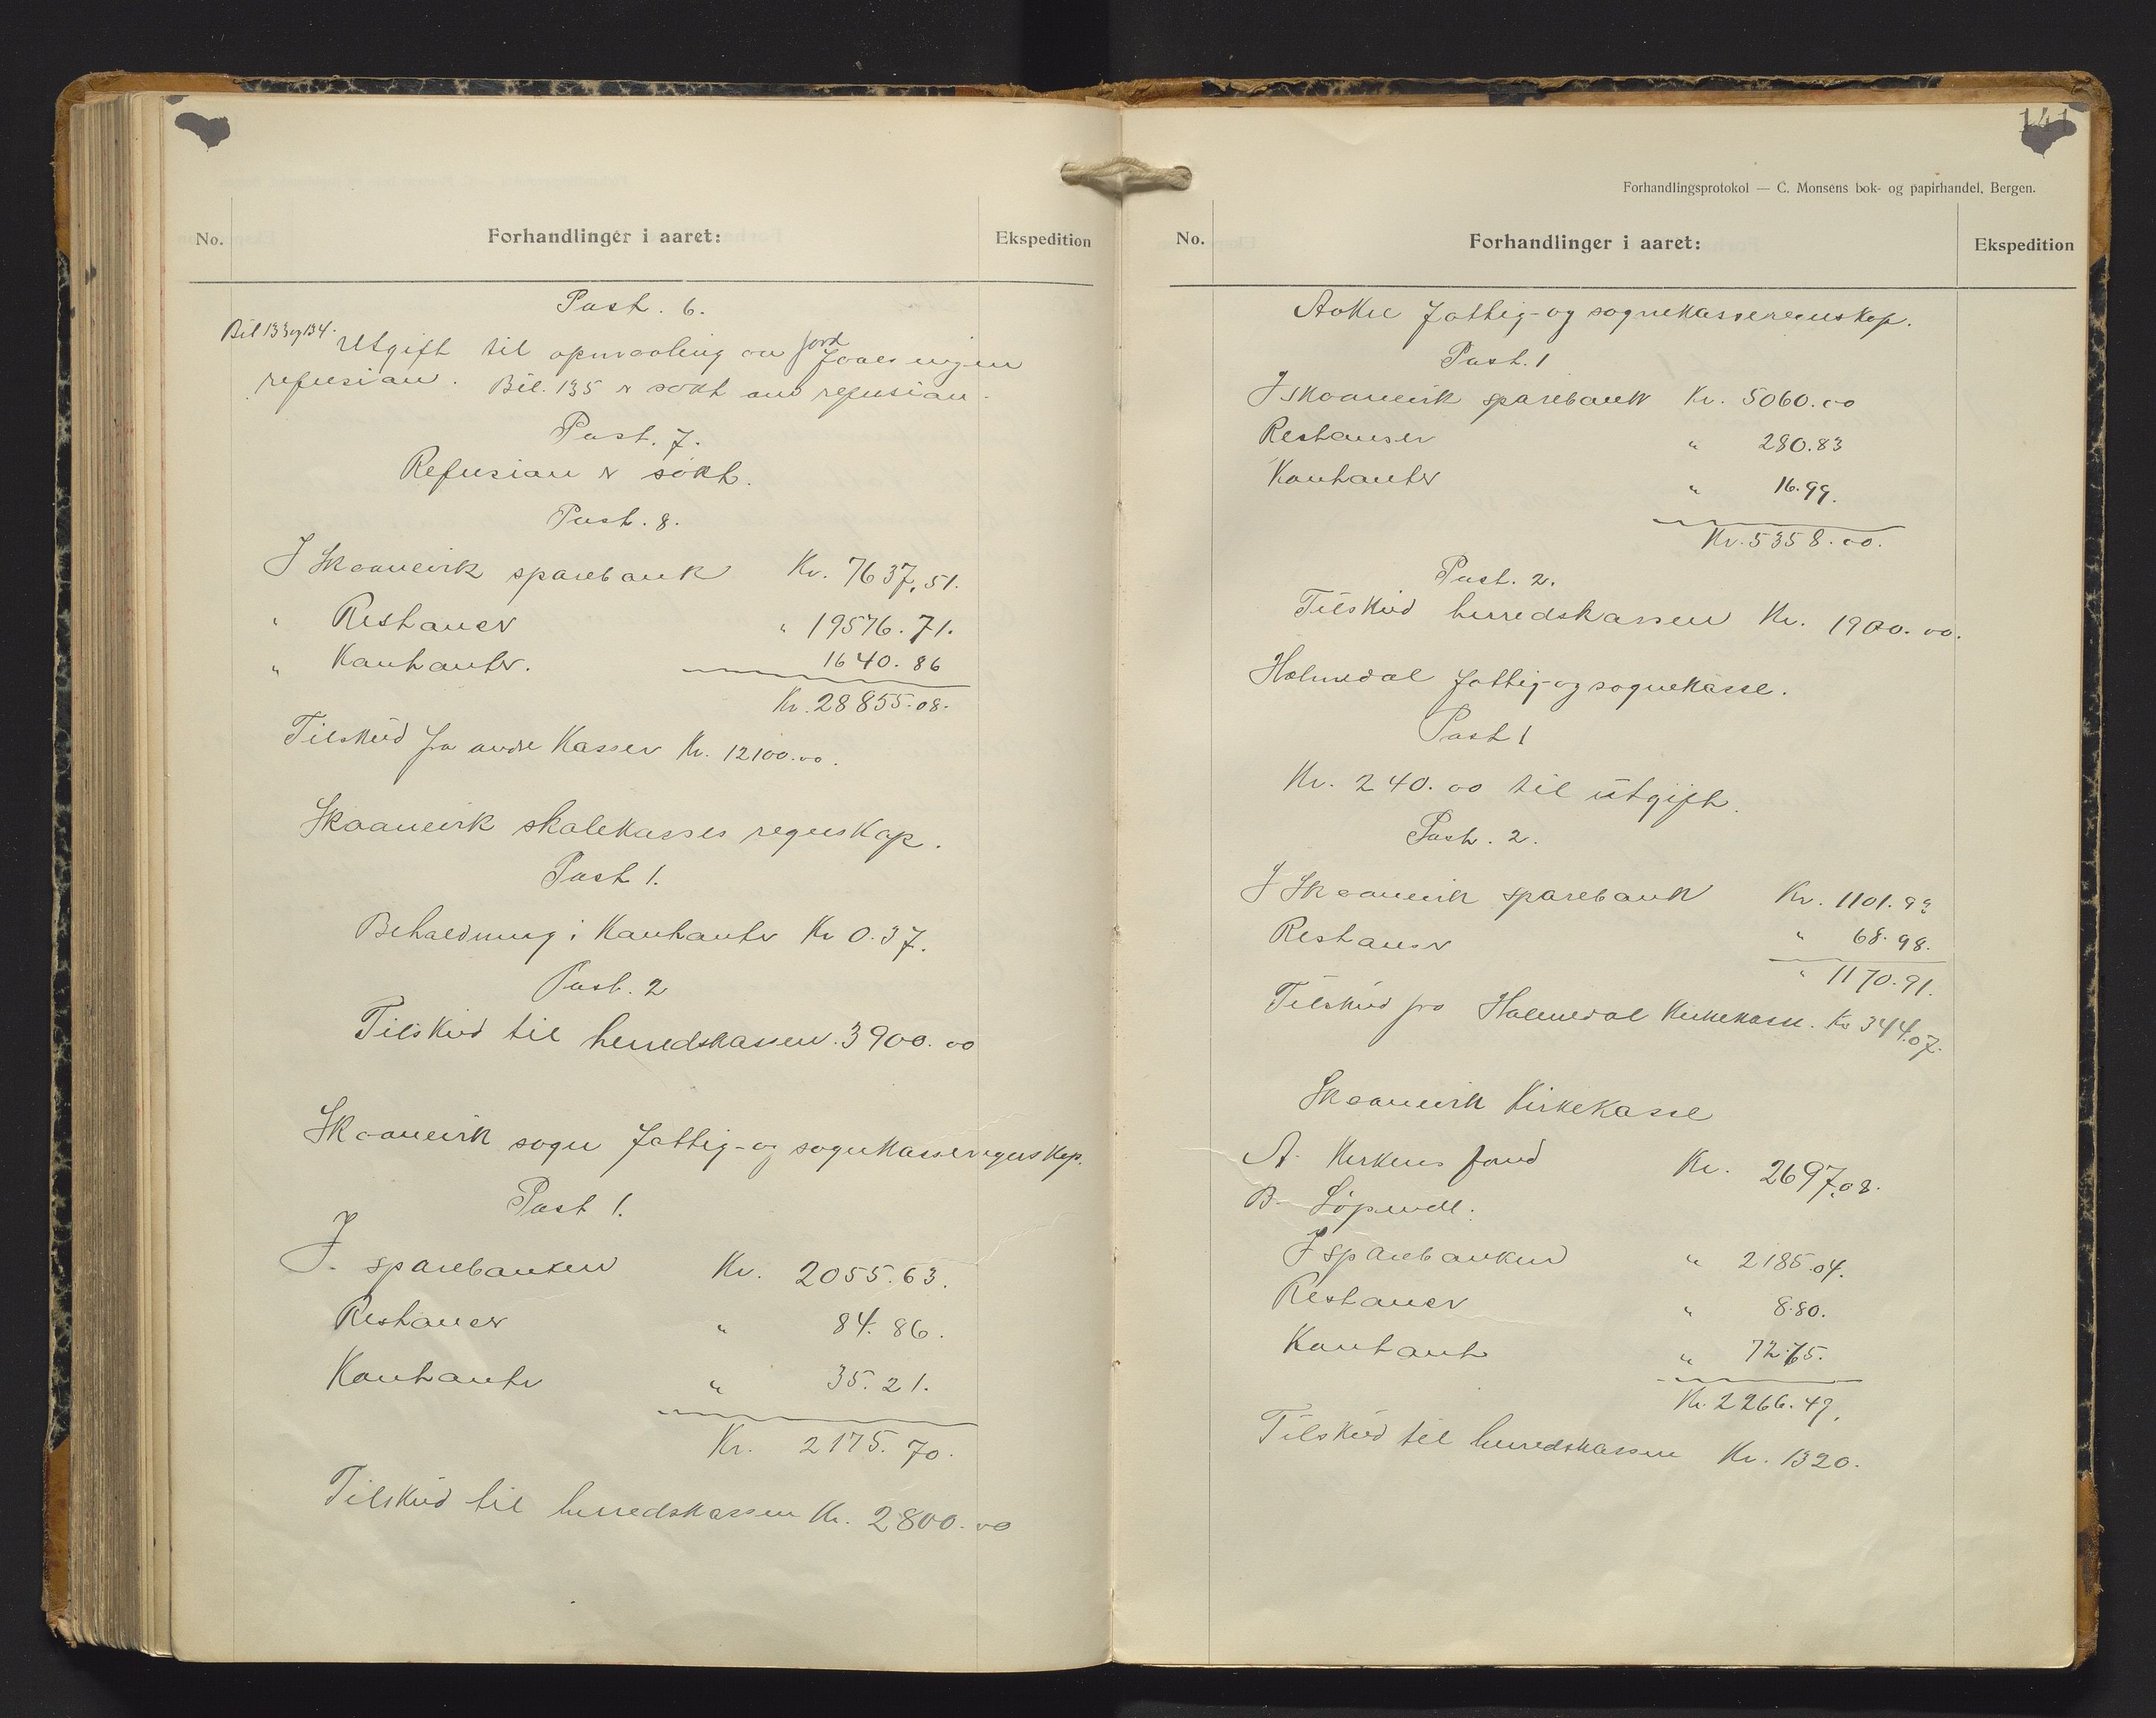 No.
Forhandlinger i aaret:
Ekspedition
Post. 6.
Bil 133 og 134. Utgift til opmaaling av jord faaes ingen
refusian. Bil. 135 er søkt om refusian.
Post. 7.
Refusian er søkt.
Post. 8.
I Skaanevik sparebank Kr. 7637,51.
" Restancer " 19576.71.
" Kontanter. 1640.86
Kr. 28855.08.
Tilskud fra andre Kasser Kr. 12100.00.
Skaanevik skolekasses regnskap.
Post 1.
Beholdning i Kontanter Kr 0.37.
Post. 2
Tilskud til herredskassen. 3900.00
Skaanevik sogn fattig- og sognekasseregnskap.
Post 1.
I sparebanken Kr. 2055.63.
Restancer " 84.86.
Kontanter " 35.21.
Kr. 2175.70.
Tilskud til herredskassen Kr. 2800.00
141
Forhandlingsprotokol — C. Monsens bok- og papirhandel, Bergen.
No.
Forhandlinger i aaret:
Ekspedition
Aakre fattig- og sognekasseregnskap.
Post. 1
I Skaanevik sparebank Kr. 5060.00
Restanser " 280.83
Kontanter " 16.99.
Kr. 5358.00.
Post. 2.
Tilskud herredskassen Kr. 1900.00.
Holmedal fattig- og sognekasse.
Post 1
Kr. 240.00 til utgift.
Post. 2.
I Skaanevik sparebank Kr. 1101.93
Restanser " 68.98.
" 1170.91.
Tilskud fra Holmedal Kirkekasse. Kr 344.07.
Skaanevik Kirkekasse
A. Kirkens fond Kr. 2697.08.
B. Løpende.
I sparebanken " 2185.04.
Restancer " 8.80.
Kontant " 72.65.
Kr. 2266.49.
Tilskud til herredskassen Kr. 1320.